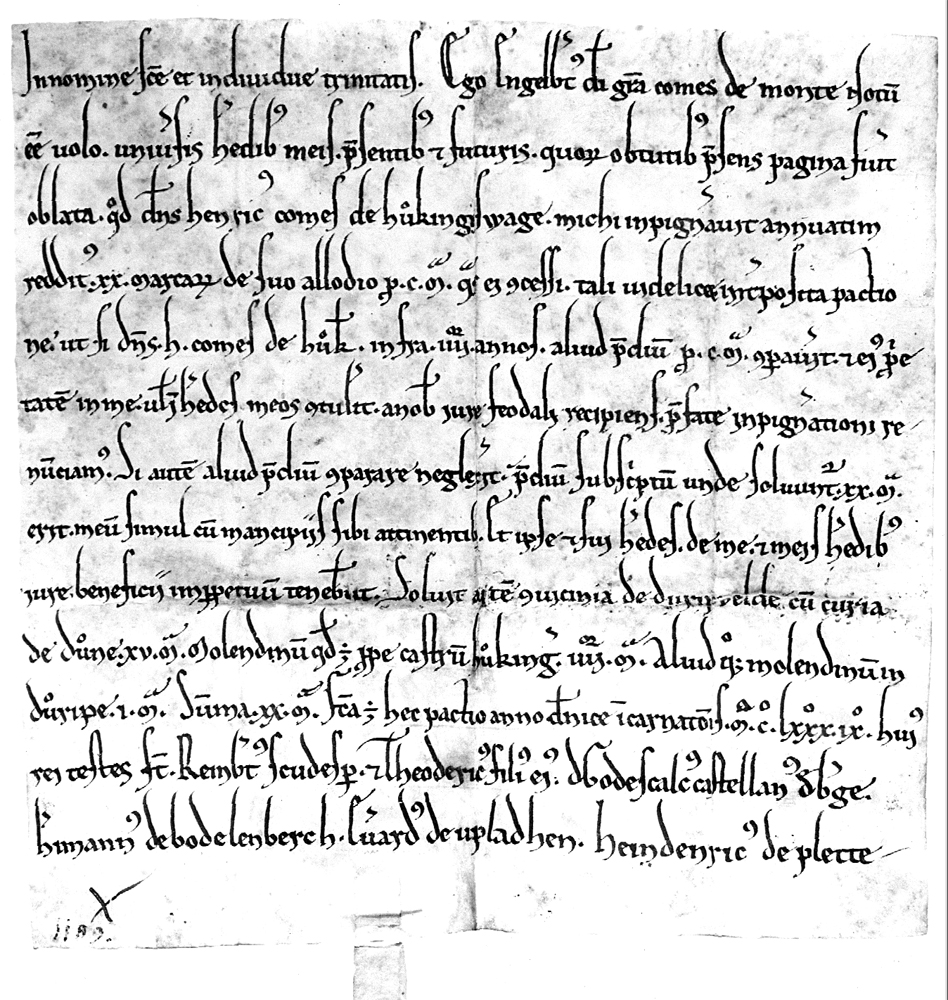 Innomine sc̄e et indiuidue trinitatis. Ego Engelbt᷒ di gr̄a comes de monte Notū
eē uolo. uniūsis h̄edib᷒ meis. p̄sentib᷒ ⁊ futuris. quoꝝ obtutib᷒ p̄sens pagina fūit
oblata. qd̄ dn̄s henric᷒ comes de hůkingiswage. michi inpignauit annuatim
reddit᷒.xx. marcaꝝ de suo allodio p̱.c.m̄. qͣs ei ꝯcessi. tali uidelicet int̄posita pactio
ne. ut si dn̄s.h. comes de hůk̄. infra.iiii.annos. aliud p̄diū p̱.c.m̄. ꝯpauit.⁊ ei᷒ ꝓp̄e
tatē in me. ul̄ ī h̄edes meos ꝯtulit. a nob̄ iure feodali recipiens. p̄fate inpignationi re
nūciam᷒. Si autē aliud p̄diū ꝯparare neglexit. p̄diū subsc̄ptū unde soluunt᷑.xx.m̄.
erit. meū simul cū mancipiis sibi attinentib᷒. Et ipse ⁊ sui h̄edes. de me. ⁊ meis h̄edib᷒
iure. beneficii inꝑpetuū tenebūt. Soluit autē ꝯuicinia de cū curia
de důne.xv.m̄. Molendinū qd̄ ē ꝓpe castrū hůkinḡ. iiii.m̄. Aliud qͦꝫ molendinū in
důripe.i.m̄. Sūma.xx.m̄. Fc̄a ē hec pactio anno dn̄ice īcarnatōis.m̊.c̊. lxxx̊.ix̊. hui᷒
rei testes st̄. Reinbt᷒ scudesp̱. ⁊ Theoderic᷒ fili᷒ ei᷒. Godescalc᷒ castellan᷒ d̄ b᷒ge.
h̄imann᷒ de bodelenberch. Eūard᷒ de upladhen. heindenric᷒ de plette
X
1189.